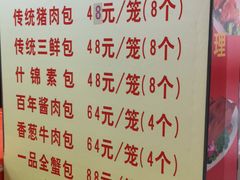 传统猪肉包 48元/笼(8个)
传统三鲜包 48元/笼(8个)
什锦素包 48元/笼(8个)
百年酱肉包 64元/笼(4个)
香葱牛肉包 64元/笼(4个)
一品全蟹包 88元/笼